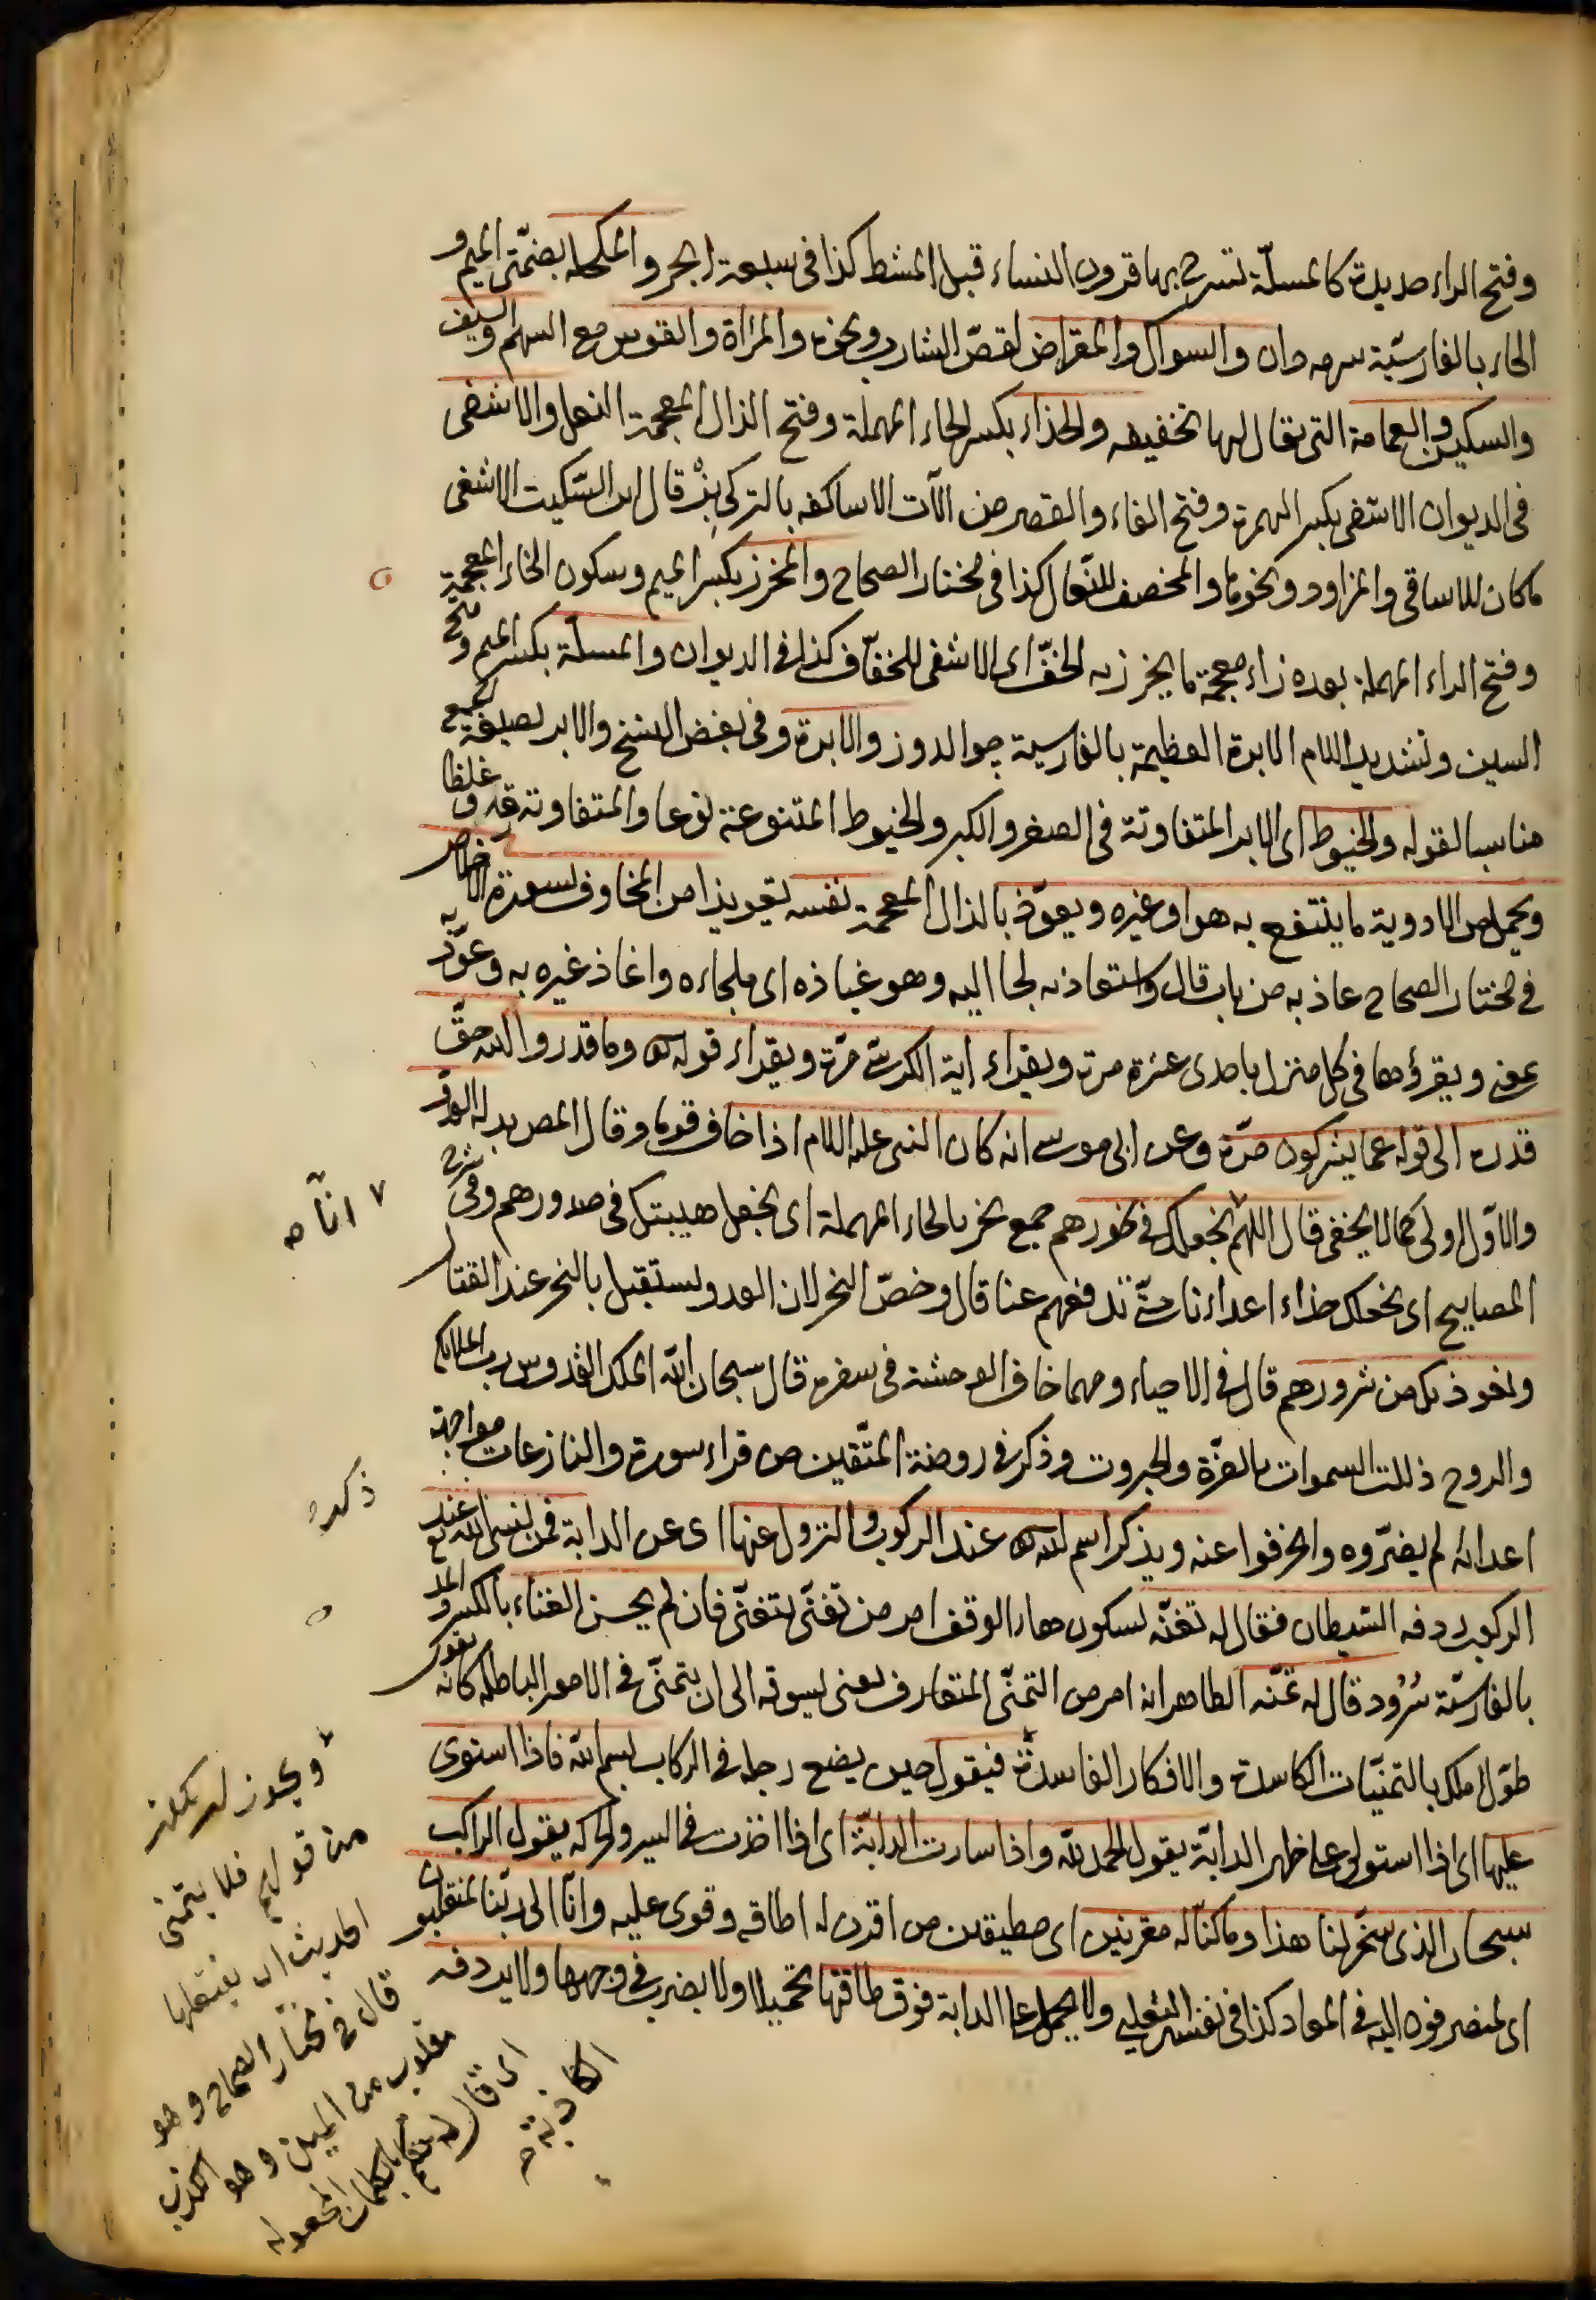 وفتح الراء حديدة كالمسلّة تسرح بها قرون النساء قبل المشط كذا فى سبعة ابحر والمكحلة بضمّتى الميم و
الحاء بالفارسيّة سرمه دان والسواك والمقراض لقصّ الشارب ونحوه والمرآة والقوس مع السهم والسيف
والسكين والعمامة التى يقال لها تخفيفه والحذاء بكسر الحاء المهملة وفتح الذال المعجمة النعل والاشفى
فى الديوان الاشفى بكسر الهمزة وفتح الفاء والقصر من الآت الاساكفه بالتركى بز قال ابن السّكيت الاشفى
ما كان للاساقى والمزاود ونحوها والمخصف للنّعال كذا فى مختار الصحاح والمخرز بكسر الميم وسكون الخاء المعجمة
وفتح الراء المهملة بعده زاء معجمة ما يخرز به الخفّ اى الاشفى للخفّاف كذا فى الديوان والمسلّة بكسر الميم وفتح
السين وتشديد اللام الابرة العظيمة بالفارسية جوالدوز والابرة وفى بعض النسخ والابر بصيغة الجمع
مناسبا لقوله والخيوط اى الابر المتفاوتة فى الصغر والكبر والخيوط المتنوعة نوعا والمتفاوتة دقة وغلظا
ويحمل من الادوية ما ينتفع به هو او غيره ويعوّذ بالذال المعجمة نفسه تعويذا من المخاوف بسورة الاخلاص
فى مختار الصحاح عاذ به من باب قال واستعاذ به لجا اليه وهو عياذه اى ملجاءه واعاذ غيره به وعوّذ به
بمعنى ويقرؤها فى كل منزل باحدى عشرة مرة ويقراء اية الكرسى مرّة ويقراء قوله تعالى وما قدروا الله حقّ
قدره الى قوله عما يشركون مرّة وعن ابى موسى انه كان النبى عليه السلام اذا خاف قوما وقال المص يريد به العدوّ
والاوّل اولى كما لا يخفى قال اللهمّ نجعلك فى نحورهم جمع نحر بالحاء المهملة اى نجعل هيبتك فى صدورهم وفى شرح
المصابيح اى نجعلك حذاء اعداءنا حتّى تدفعهم عنا قال وخصّ النحر لان العدو يستقبل بالنحر عند القتال
ونعوذ بك من شرورهم قال فى الاحياء ومهما خاف الوحشة فى سفره قال سبحان الله الملك القدوس رب الملائكة
والروح ذللت السموات بالعزّة والجبروت وذكر فى روضة المتّقين من قراء سورة والنازعات مواجهة
اعدائه لم يضرّوه وانحرفوا عنه ويذكر اسم الله تعالى عند الركوب والنزول عنها اى عن الدابة فمن لم يسم الله عند
الركوب ردفه الشيطان فقال له تغنّه بسكون هاء الوقف امر من تغنّى يتغنّى فان لم يحسن الغناء بالكسر والمد
بالفارسيّة سُرُود قال له تمنّه الظاهر انه امر من التمنّى المتعارف يعنى يسوقه الى ان يتمنّى فى الامور الباطلة كانه يقول
طوّل املك بالتمنيّات الكاسدة والافكار الفاسدة فيقول حين يضع رجله فى الركاب بسم الله فاذا استوى
عليها اى اذا استولى على ظهر الدابّة يقول الحمد لله واذا سارت الدابّة اى اذا اخذت فى السير والحركه يقول الراكب
سبحان الذى سخّر لنا هذا وما كنّا له مقرنين اى مطيقين من اقرن له اطاقه وقوى عليه وانّا الى ربّنا لمنقلبون
اى لمنصرفون اليه فى المعاد كذا فى تفسير الثعلبى ولا يحمل على الدابة فوق طاقتها تحميلا ولا يضرب فى وجهها ولا يردفه
انّا صح
ذكره
ويجوز ان يكون
من قولهم فلان يتمنى
الحديث اى يفتعلها
قال فى مختار الصحاح وهو
مقلوب من المين وهو الكذب
اى قال له تكلم بالكلمات المجعوله
الكاذبة صح